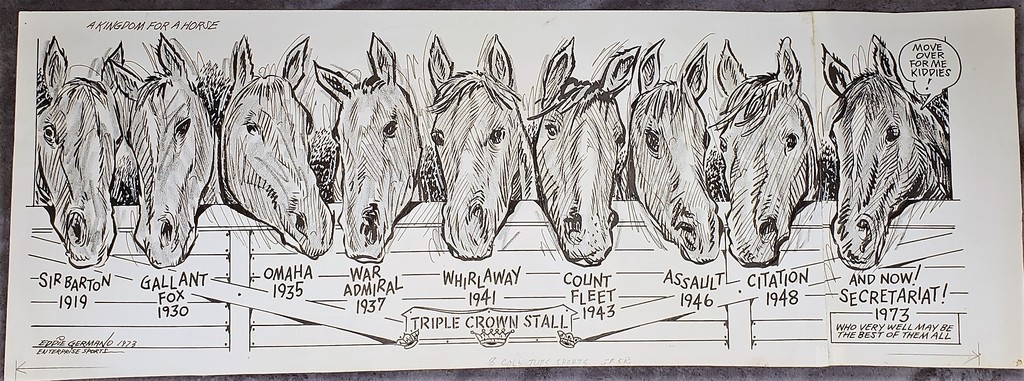 A KINGDOM FOR A HORSE
MOVE
OVER
FOR ME
KIDDIES
!
SIR BARTON
1919
GALLANT
FOX
1930
OMAHA
1935
WAR
ADMIRAL
1937
WHIRLAWAY
1941
COUNT
FLEET
1943
ASSAULT
1946
CITATION
1948
AND NOW!
SECRETARIAT!
1973
WHO VERY WELL MAY BE
THE BEST OF THEM ALL
TRIPLE CROWN STALL
EDDIE GERMANO 1973
ENTERPRISE SPORTS